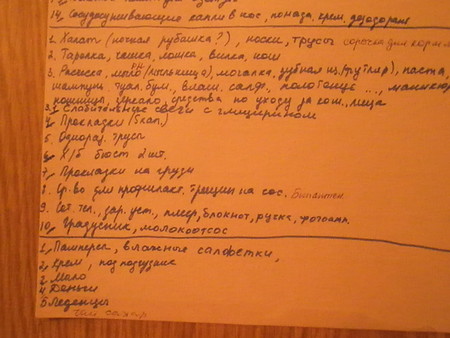 14. Сосудосуживающие капли в нос, помада, крем, дезодорант
1. Халат (ночная рубашка?), носки, трусы сорочка для корм
2. Тарелка, чашка, ложка, вилка, нож
3. Расческа, мыло (мыльница), мочалка, зубная щ. (футляр), паста,
шампунь, туал. бум., влаж. салф., полотенце ..., маникюр
ножницы, зеркало, средства по уходу за кож. лица
3.1 Слабительные свечи с глицерином
4. Прокладки (5кап.)
5. Однораз. трусы
6. Х/б бюст. 2 шт.
7. Прокладки на грудь
8. Ср-во для профилакт. трещин на сос. Бипантен
9. Сот. тел., зар. уст., плеер, блокнот, ручка, фотоапп
10. Градусник, молокоотсос
1. Памперсы, влажные салфетки,
2. Крем, под подгузник
3. Мыло
4. Деньги
5. Леденцы
чай сахар